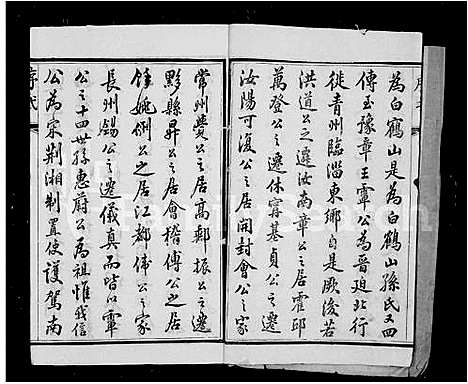 為白鶴山是為白鶴山孫氏又四
傳至豫章王覃公為晉廹北行
徙青州臨淄東鄉自是厥後若
洪道公之遷汝南章公之居霍邱
萬登公之遷休寧基貞公之遷
汝陽可復公之居開封會公之家
常州贊公之居高郵振公之遷
黟縣昇公之居會稽傅公之居
餘姚侀公之居江都倚公之家
長州錫公之遷儀真而皆以覃
公之十四世孫惠蔚公為祖惟我信
公為宗荆湘制置使護駕南
序
氏